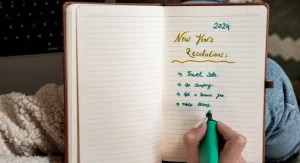 2024
New Year's
Resolutions:
→ Travel Solo.
→ Go Camping.
→ Get a Dream Job.
→ Make